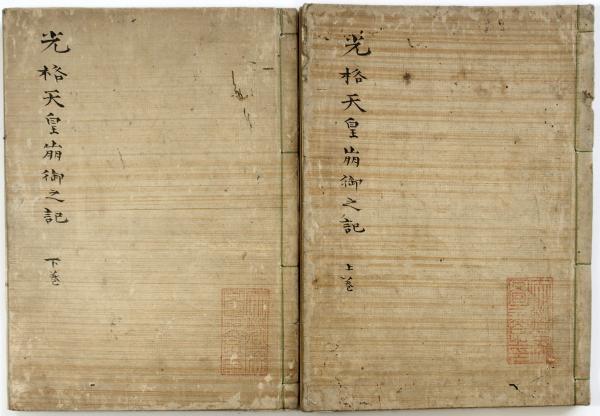 光格天皇崩御之記 上巻
光格天皇崩御之記 下巻